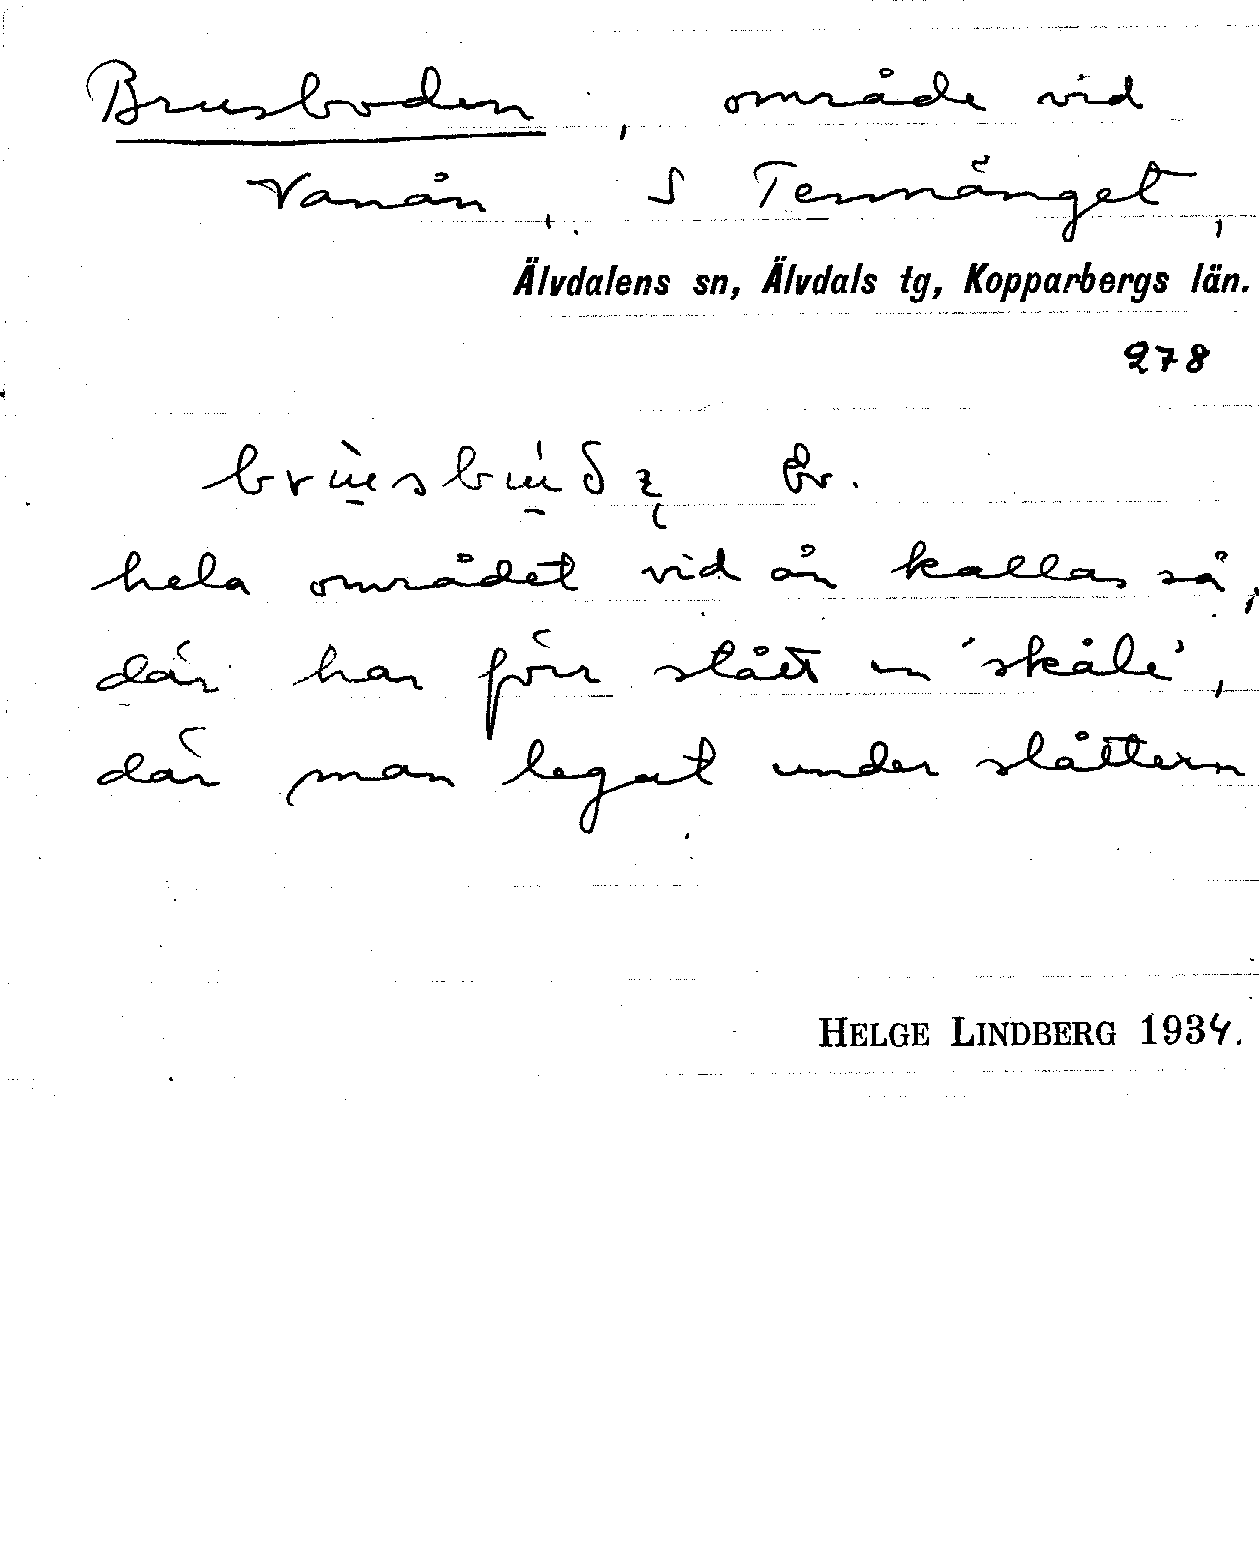 Brusboden, område vid
Vanån, S Tennänget,
Älvdalens sn, Älvdals tg, Kopparbergs län.
278
hela området vid ån kallas så,
där har förr stått en 'skåle',
där man legat under slåttern
HELGE LINDBERG 1934.